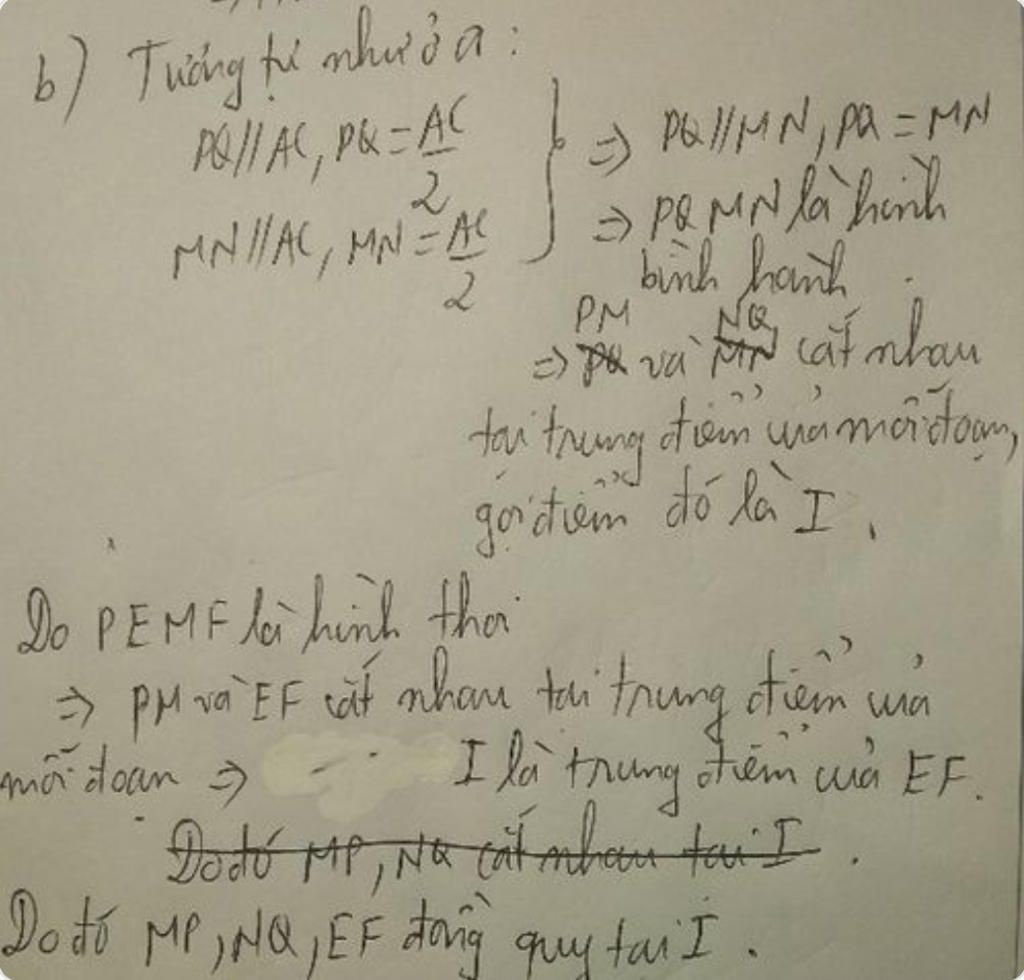 b) Tương tự như ở a:
PQ//AC, PQ = AC/2
MN//AC, MN = AC/2
} => PQ//MN, PQ = MN
=> PQMN là hình
bình hành.
PM NQ
=> PQ và MN cắt nhau
tại trung điểm của mỗi đoạn,
gọi điểm đó là I.
Do PEMF là hình thoi
=> PM và EF cắt nhau tại trung điểm của
mỗi đoạn => I là trung điểm của EF.
Do đó MP, NQ cắt nhau tại I.
Do đó MP, NQ, EF đồng quy tại I.